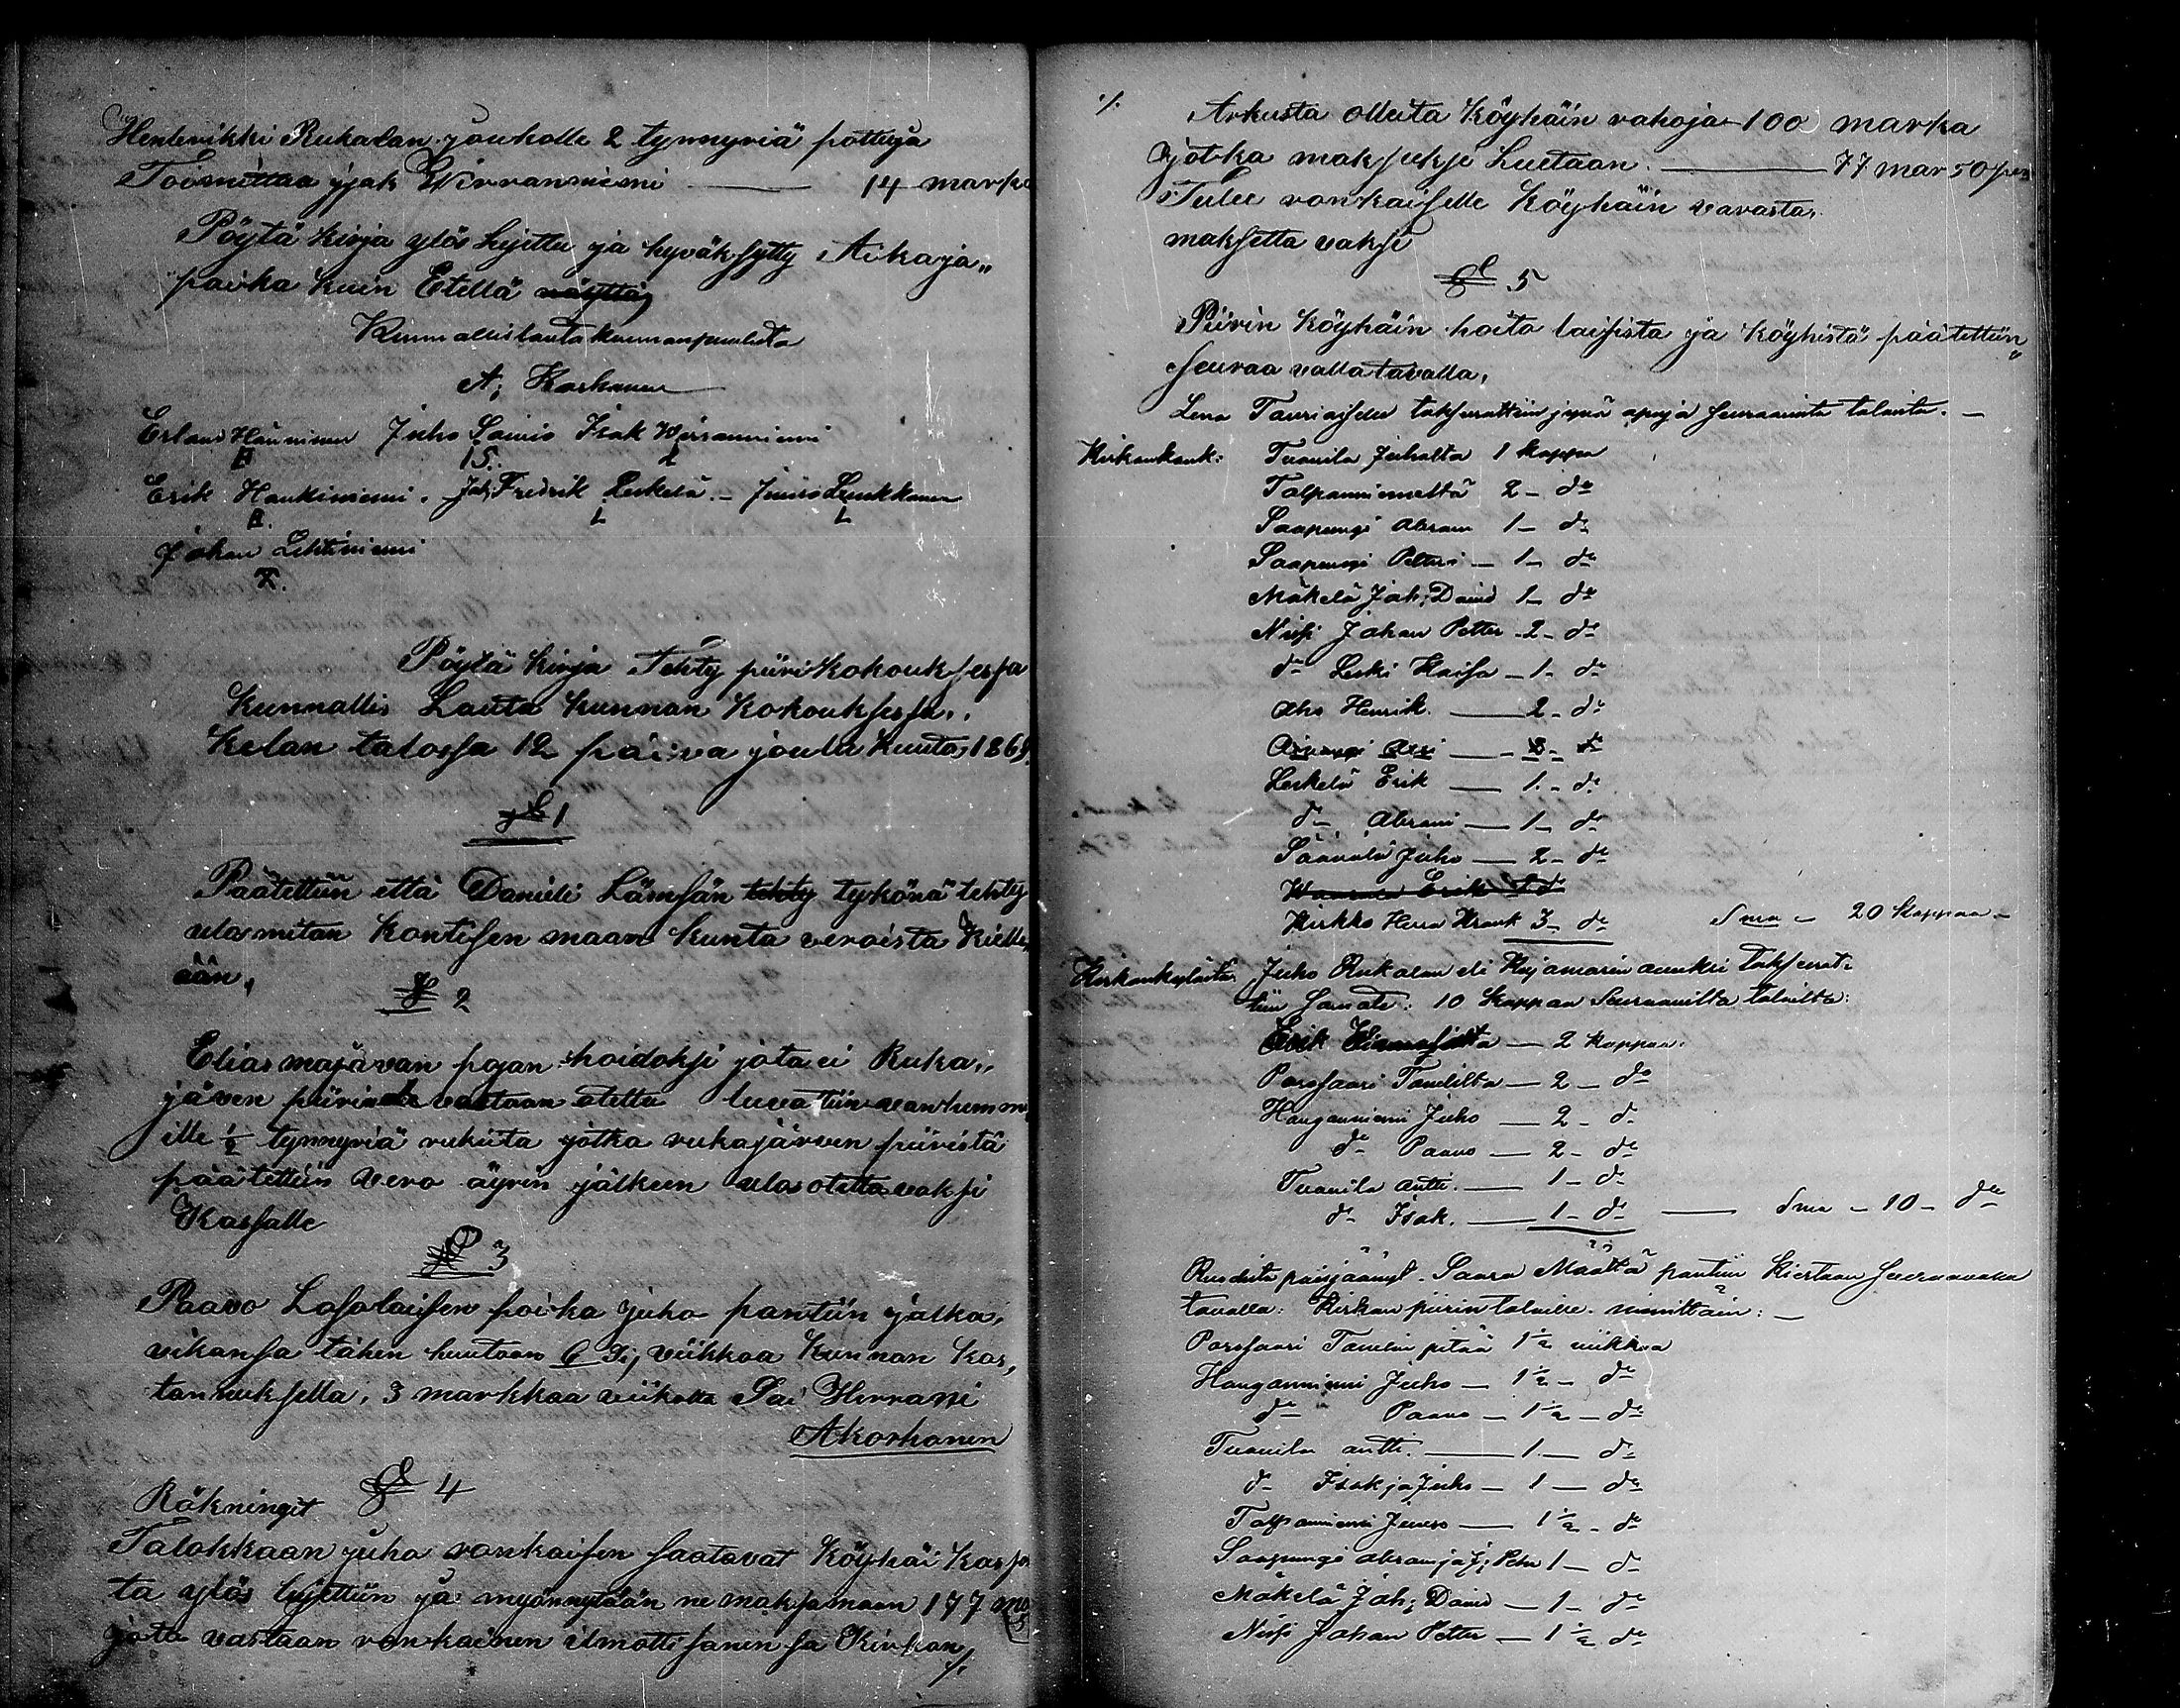 Hentrikki Rukalan jouholle 2 tynnyriä pottuja
Toimittaa jsak Wirranniemi — 14 marka
Pöytä kirja ylös Lujettu ja hyväksytty Aikaja„
paika kuin Etellä näyttää
Kunnallislautakunnan puolesta
A; Karhanen
Erland Hänninen Juho Sainio Isak Wirranniemi
Erik Haukiniemi. Joh: Fredrik Leskelä. – Juuso Lunkkanen
Johan Lehtiniemi
Pöytä kirja Tehty piiri Kokouksessa
Kunnallis Lauta kunnan Kokouksessa„
Kelan talossa 12 päivä joulu kuuta 1869
§ 1
Päätettiin että Danieli Lämsän tehty tykönä tehty
ulosmitan Kontisen maan kunta veroista Kielle„
ään,
§ 2
Elias majavan pojan hoidoksi jota ei Ruka„
järven piirin vastaan otettu luvattiin vanhemm„
ille ½ tynnyriä rukiita jotka rukajärven piiristä
päätettiin vero äyrin jälkeen ulos otettavaksi
Kassalle
§ 3
Paavo Lasolaisen poika juho pantiin jalka,
vikansa tähen huutoon 6 Si; viikkoa Kunnan Kos,
tannuksella, 3 markkaa viikolta Sai Herrani
AKorhonen
§ 4
Räkningit
Talokkaan juho vonkaisen saatavat Köyhäi kassa
ta ylös lujettiin ja myönnytään ne maksamaan 177 ma
jota vastaan vonkainen ilmotti hänen sa Kirkon ./.
./. Arkusta olleita Köyhäin rahoja 100 marka
jotka maksuksi Luetaan. — 77 mar 50 pen
Tulee vonkaiselle Köyhäin varasta,
maksetta vaksi
§ 5
Piirin Köyhäin hoito laisista ja Köyhistä päätettiin„
seuraa vallatavalla,
Lena Tauriaisen taksurattiin jyvä apuja seuraavista taloista. –
Kirkonkank: Tuovila Juholta 1 kappa
Talpanniemeltä 2 – do
Saapungi Abram 1 – do
Saapungi Petteri – 1 – do
Mäkelä Joh; David 1 – do
Nissi Johan Petter – 2 – do
do Leski Kaisa – 1 – do
Aho Henrik. — 2 – do
Leskelä Erik — 1 – do
do Abrami — 1 – do
Säävälä Juho — 2 – do
Erik 1 do
Kirkko Herra Krank 3 – do Sma – 20 Kappaa –
Kirkonkylästä. Juho Rukalan eli Rajamarin aunkri taksurat„
tiin samate: 10 Kappaa Seuraavilta taloilta:
Erik — 2 kappaa.
Porosaari Tanelilta — 2 – do
Hanganniemi Juho — 2 – do
do Paavo — 2 – do
Tuovila Antti. — 1 – do
do Isak. — 1 – do — Sma – 10 – do
Ruodista päisjäänyt. Saara Määttä pantiin Kiertaan seuraavata
tavalla: Kirkon piirin taloille. nimittäin: –
Porosaari Tanelin pitää 1½ viikkoa
Hanganniemi Juho — 1½ – do
do Paavo — 1½ – do
Tuovila Antti. — 1 – do
do Isak ja Juho — 1 — do
Talpanniemi Juuso — 1½ – do
Saapungi Abram ja J; Petr 1 – do
Mäkelä Joh; David — 1 – do
Nissi Johan Petter — 1½ do